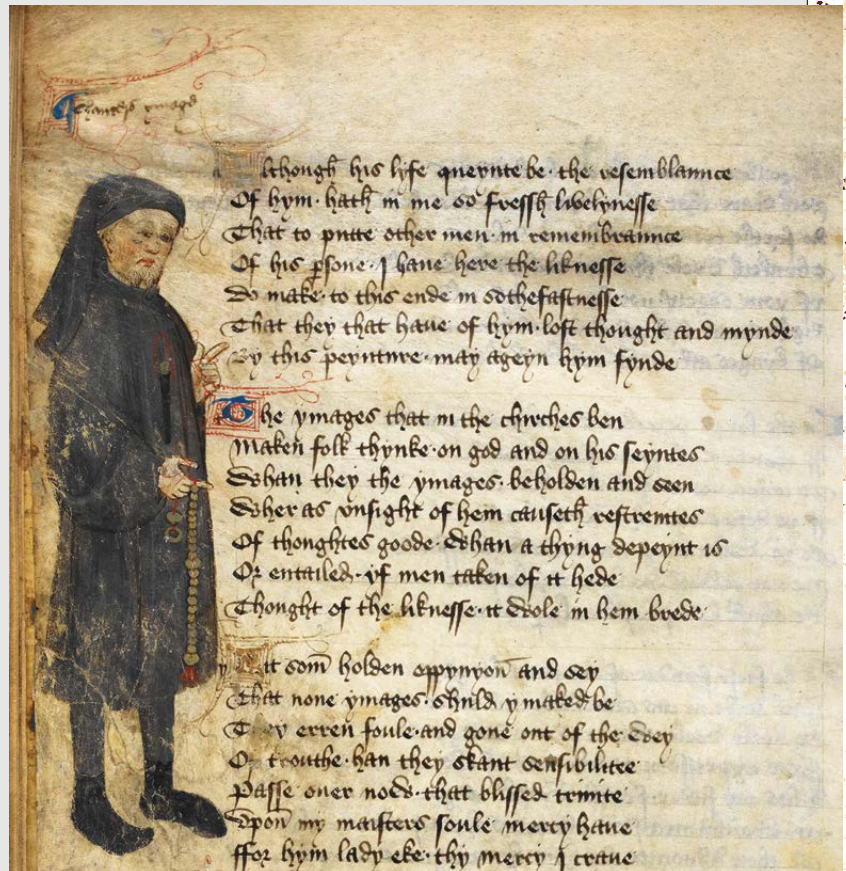 Chaucers ymage
Although his lyfe queynte be· the resemblaunce
Of hym· hath in me so fressh livelynesse
That to putte other men· in remembraunce
Of his ꝑsone· I haue here the liknesse
Do make· to this ende in sothefastnesse
That they that haue of hym· lost thought and mynde
By this peynture· may ageyn hym fynde
The ymages that in the chirches ben
Maken folk thynke· on god and on his seyntes
Whan they the ymages· beholden and seen
Wher as vnsight of hem causeth restreintes
Of thoghtes goode· Whan a thyng depeynt is
Or entailed· yf men taken of it hede
Thoght of the liknesse· it wole in hem brede
Yit som̄ holden oppynyon̄ and sey
That none ymages· shuld ymaked be
They erren foule· and gone out of the wey
Of trouthe· han they skant sensibilitee
Passe ouer now· that blissed trinite
Vpon̄ my maisters soule mercy haue
ffor hym lady eke· thy mercy I craue